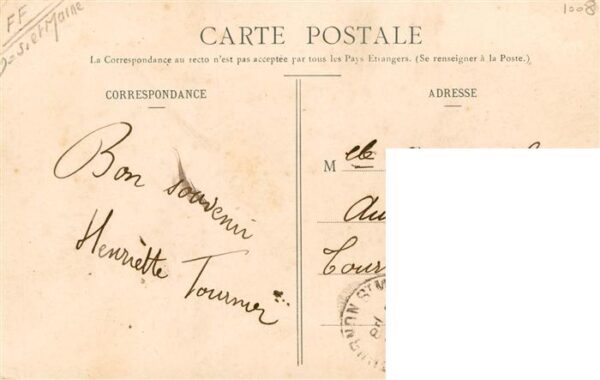 FF
Seine et Marne
1008
CARTE POSTALE
La Correspondance au recto n'est pas acceptée par tous les Pays Etrangers. (Se renseigner à la Poste.)
CORRESPONDANCE
ADRESSE
Bon souvenir
Henriette Tournier
Melle
Au
Tour
URNON St M